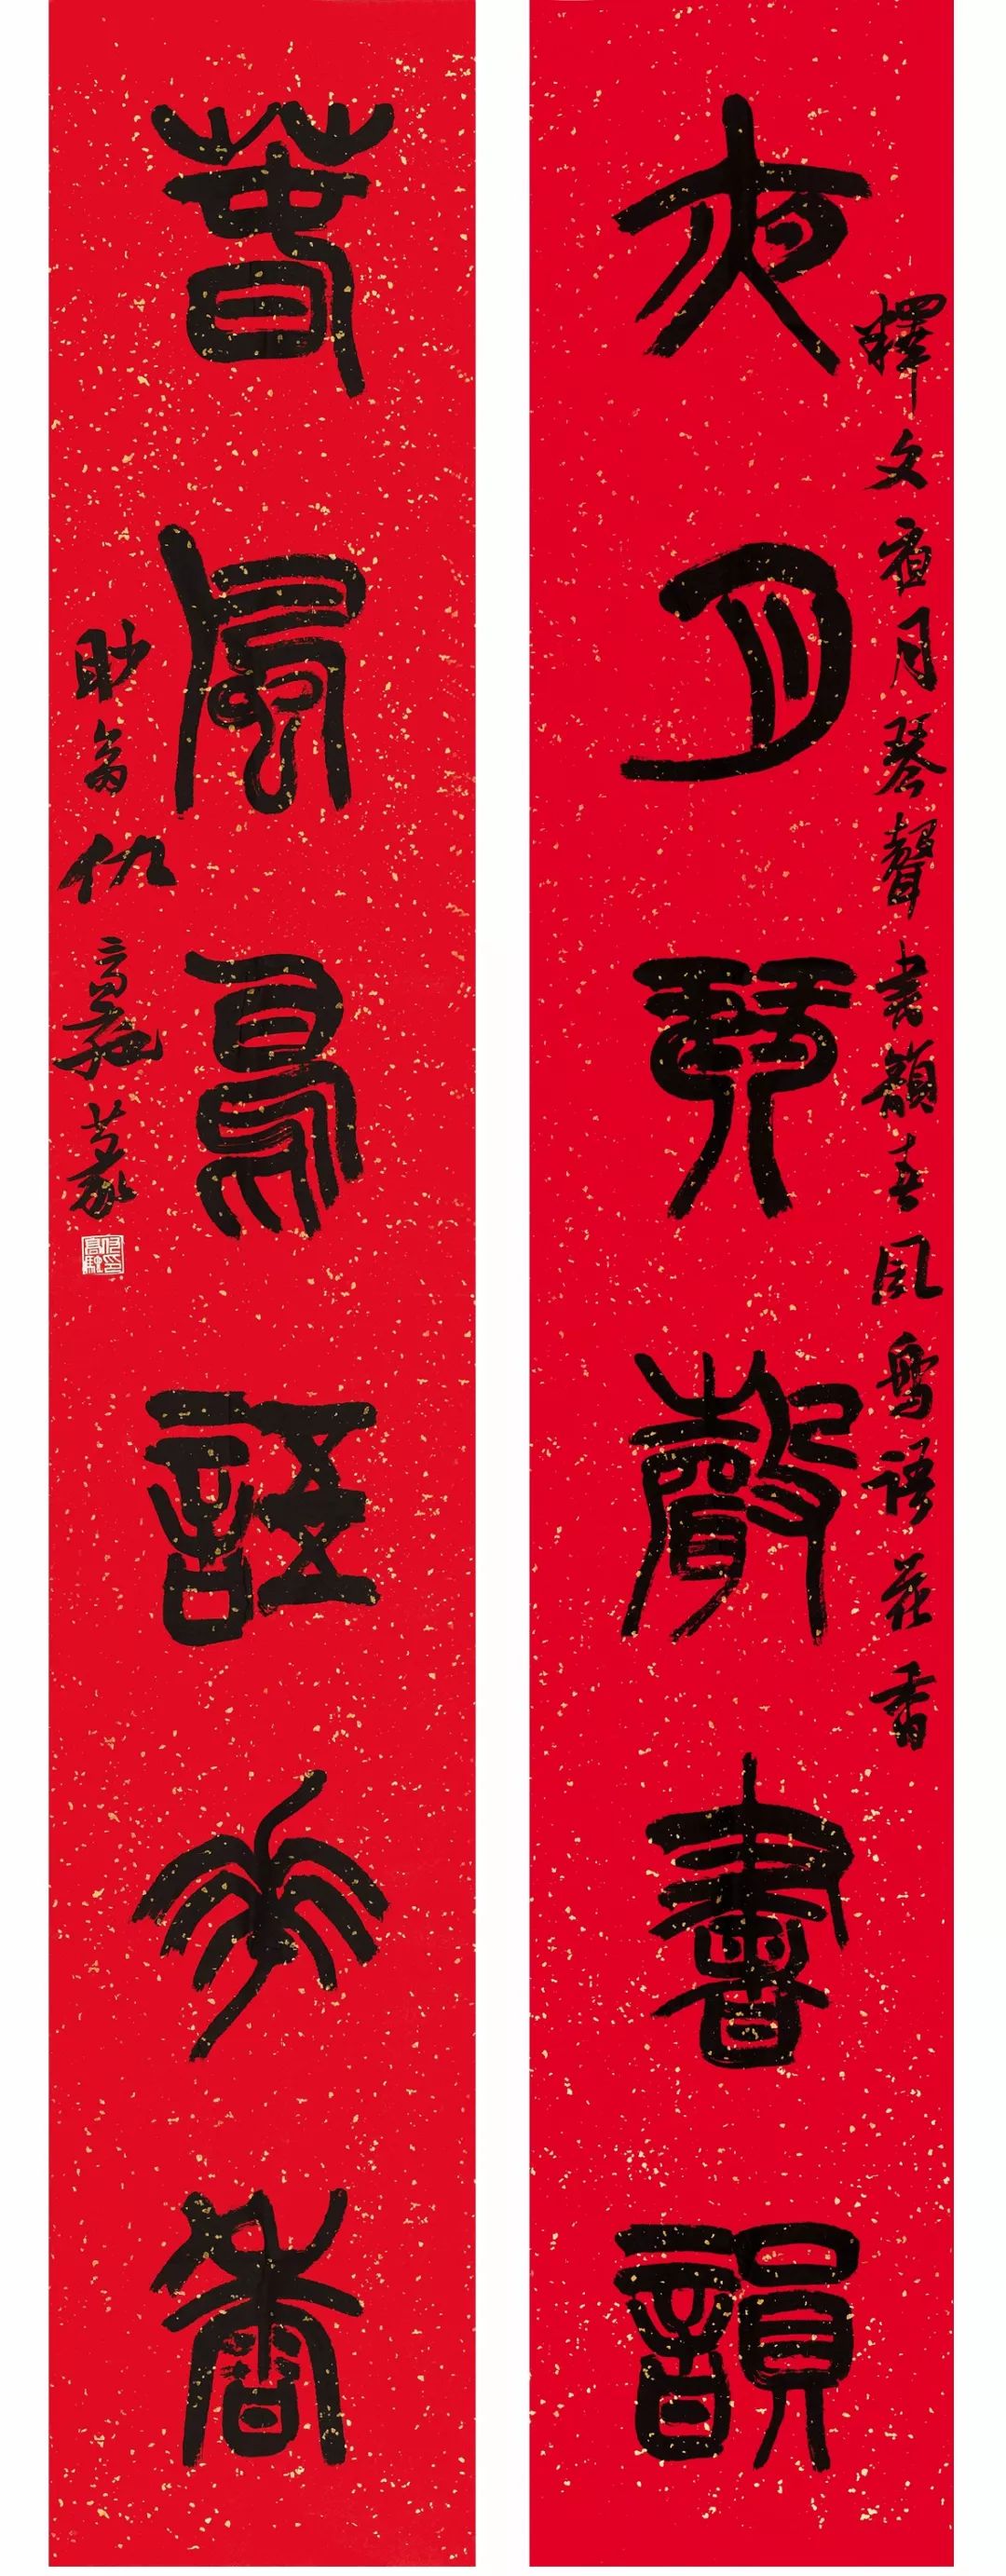 夜月琴聲書韻
釋文夜月琴聲書韻春風鳥語花香
春風鳥語花香
仇高馳篆